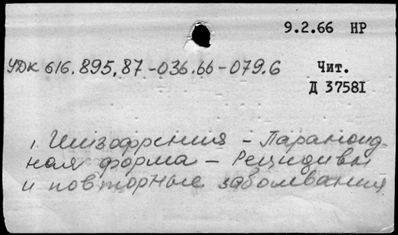 9.2.66 НР
УДК 616.895.87-036.66-079.6
Чит.
Д 37581
1. Шизофрения - Параноид-
ная форма - Рецидивы
и повторные заболевания